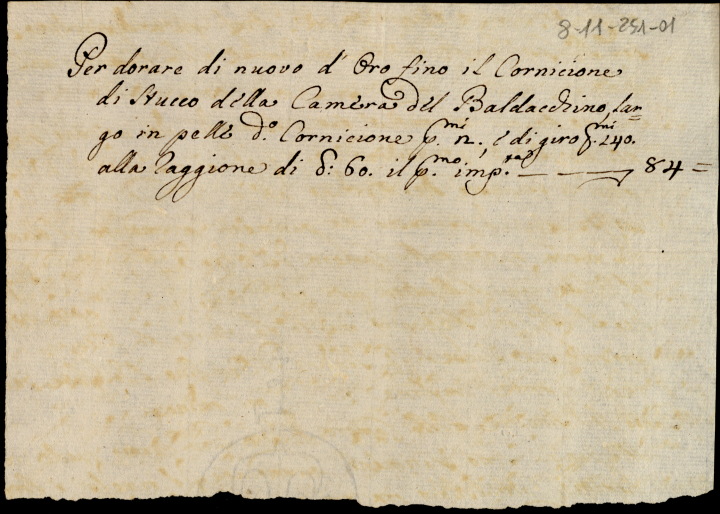 8-11-251-01
Per dorare di nuovo d'Oro fino il Cornicione
di Stucco della Camera del Baldacchino, lar=
go in pelle d.º Cornicione p.mi n., e di giro p.mi 140.
alla raggione di d: 60. il p.mo imp. 84=